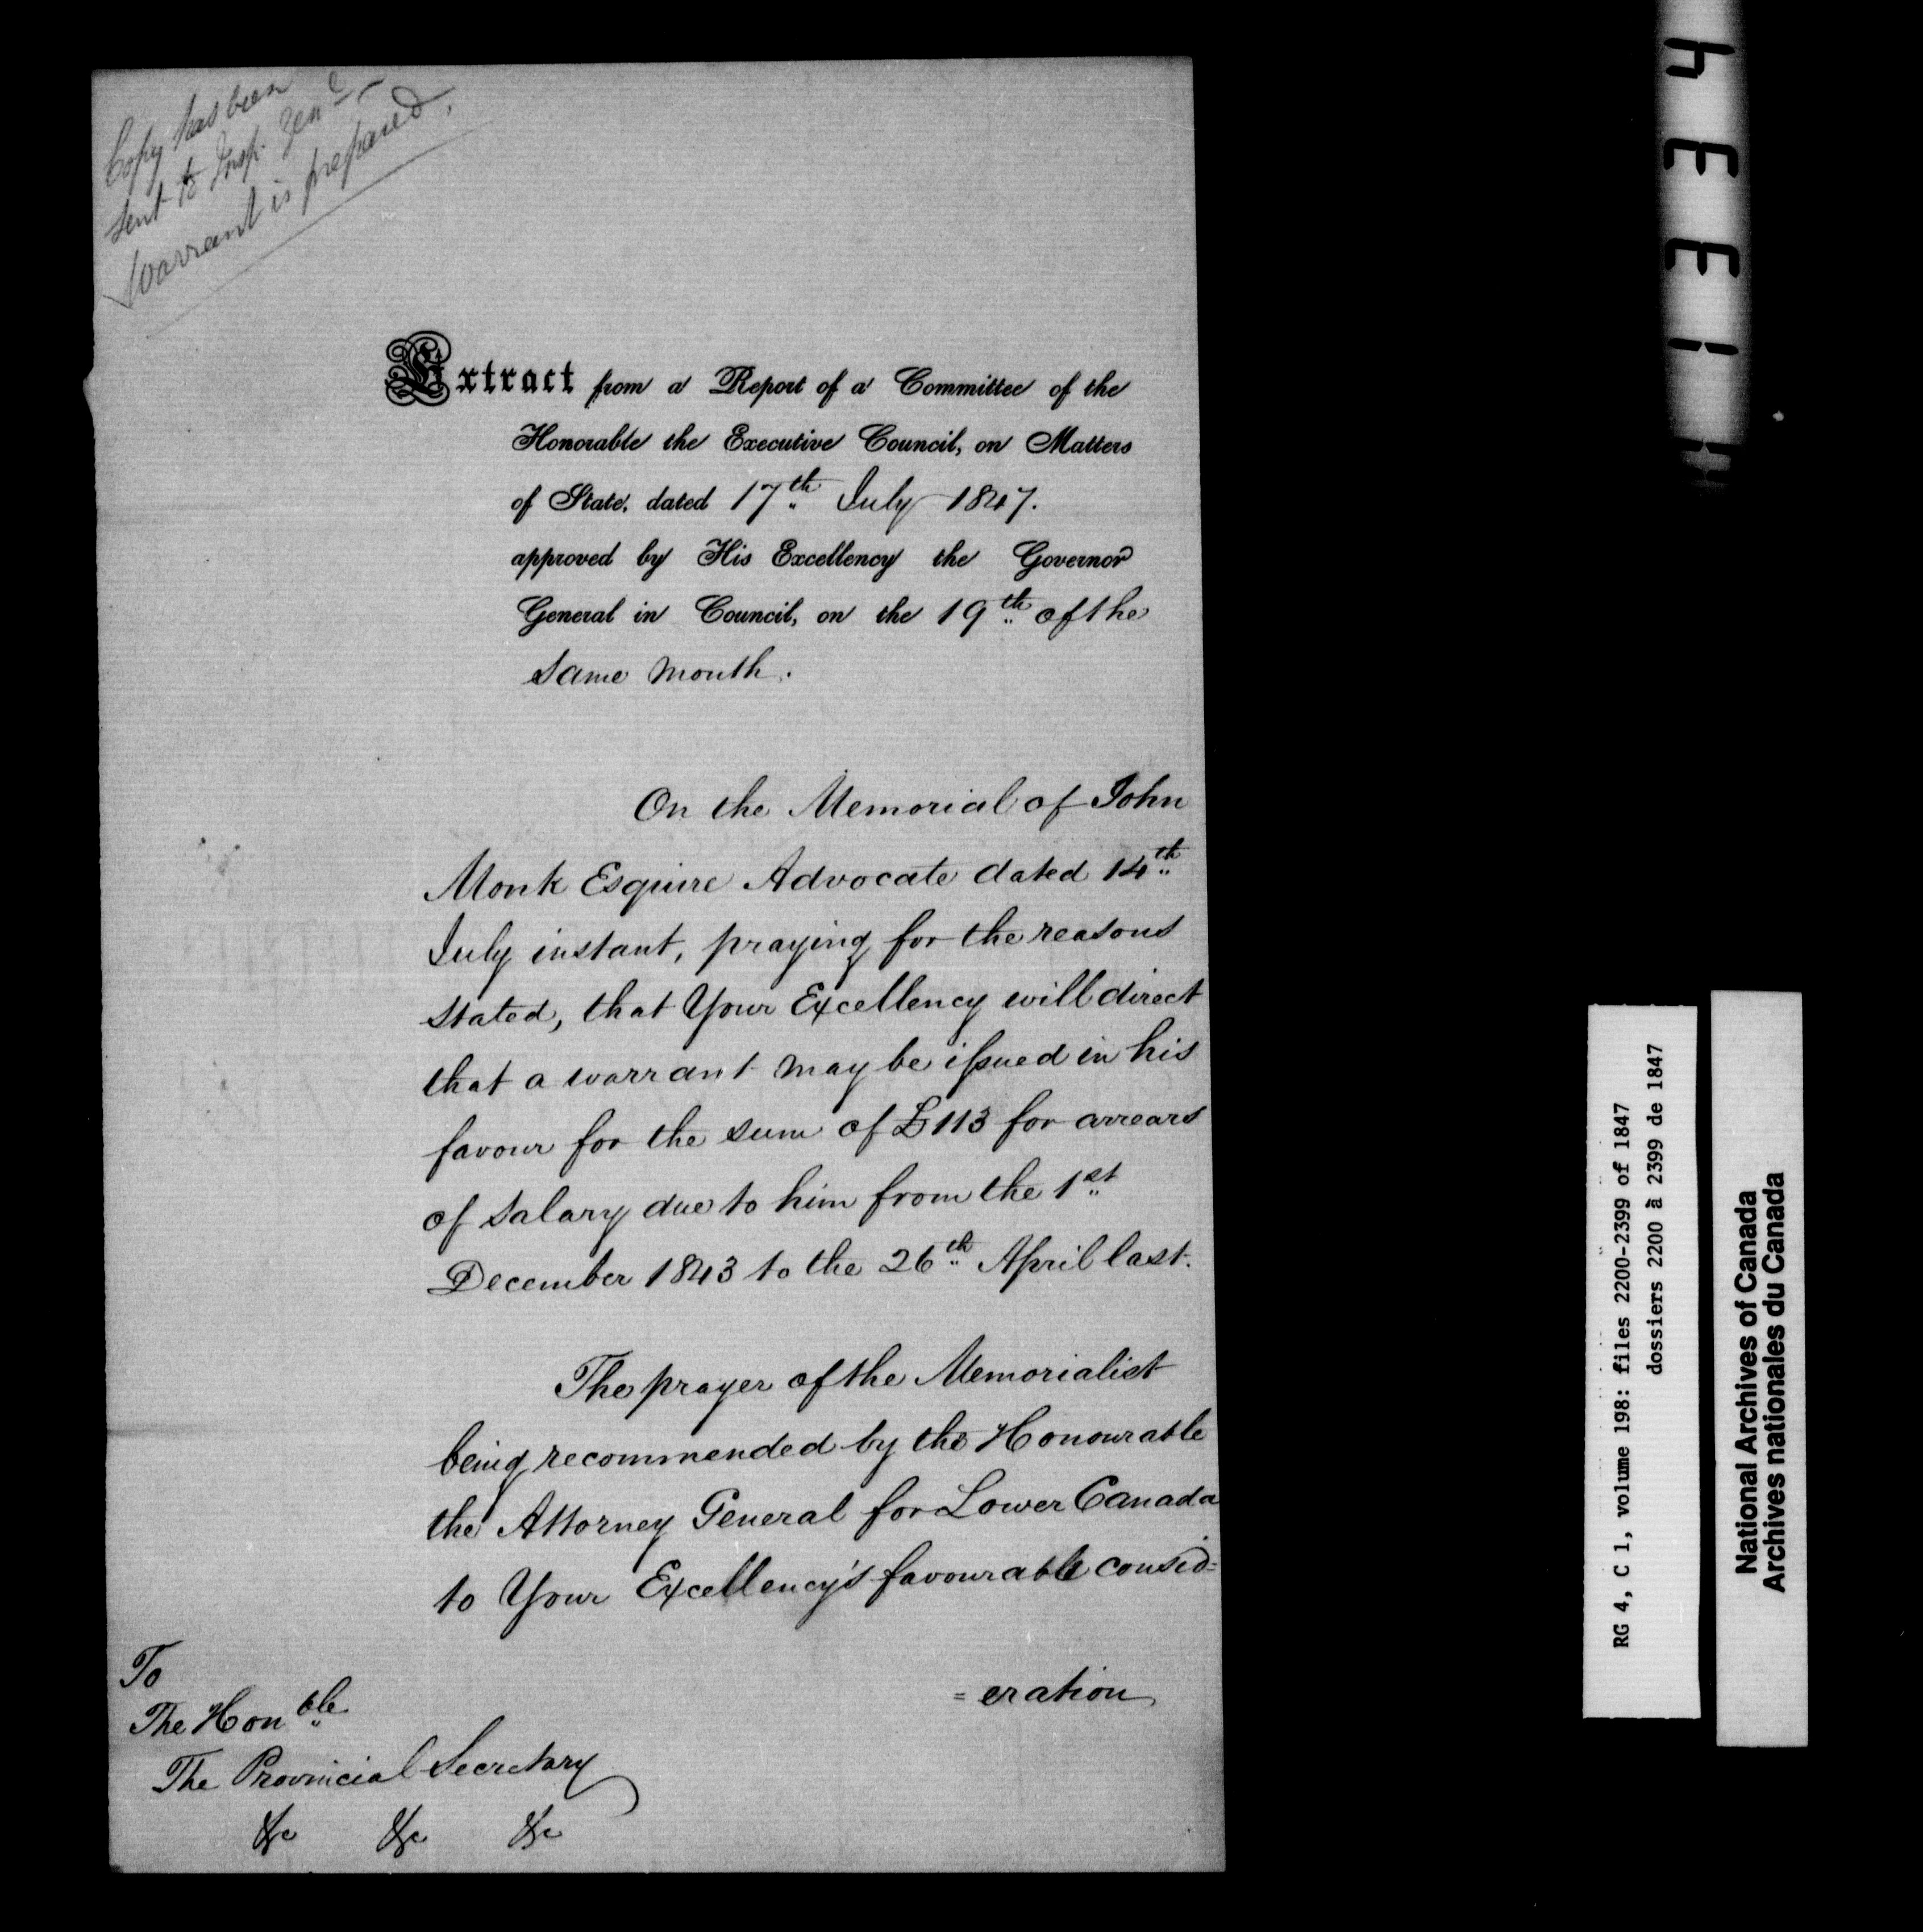 Copy has been
sent to Insp. Genl
Warrant is prepared.
Extract from a Report of a Committee of the
Honorable the Executive Council, on Matters
of State, dated 17th July 1847.
approved by His Excellency the Governor
General in Council, on the 19th of the
same month.
On the Memorial of John
Monk Esquire Advocate dated 14th
July instant, praying for the reasons
stated, that Your Excellency will direct
that a warrant may be issued in his
favour for the sum of £113 for arrears
of salary due to him from the 1st
December 1843 to the 26th April last.
The prayer of the Memorialist
being recommended by the Honourable
the Attorney General for Lower Canada
to Your Excellency's favourable consid=
=eration
To
The Honble
The Provincial Secretary
&c &c &c
RG 4, C 1, volume 198: files 2200-2399 of 1847
dossiers 2200 à 2399 de 1847
National Archives of Canada
Archives nationales du Canada